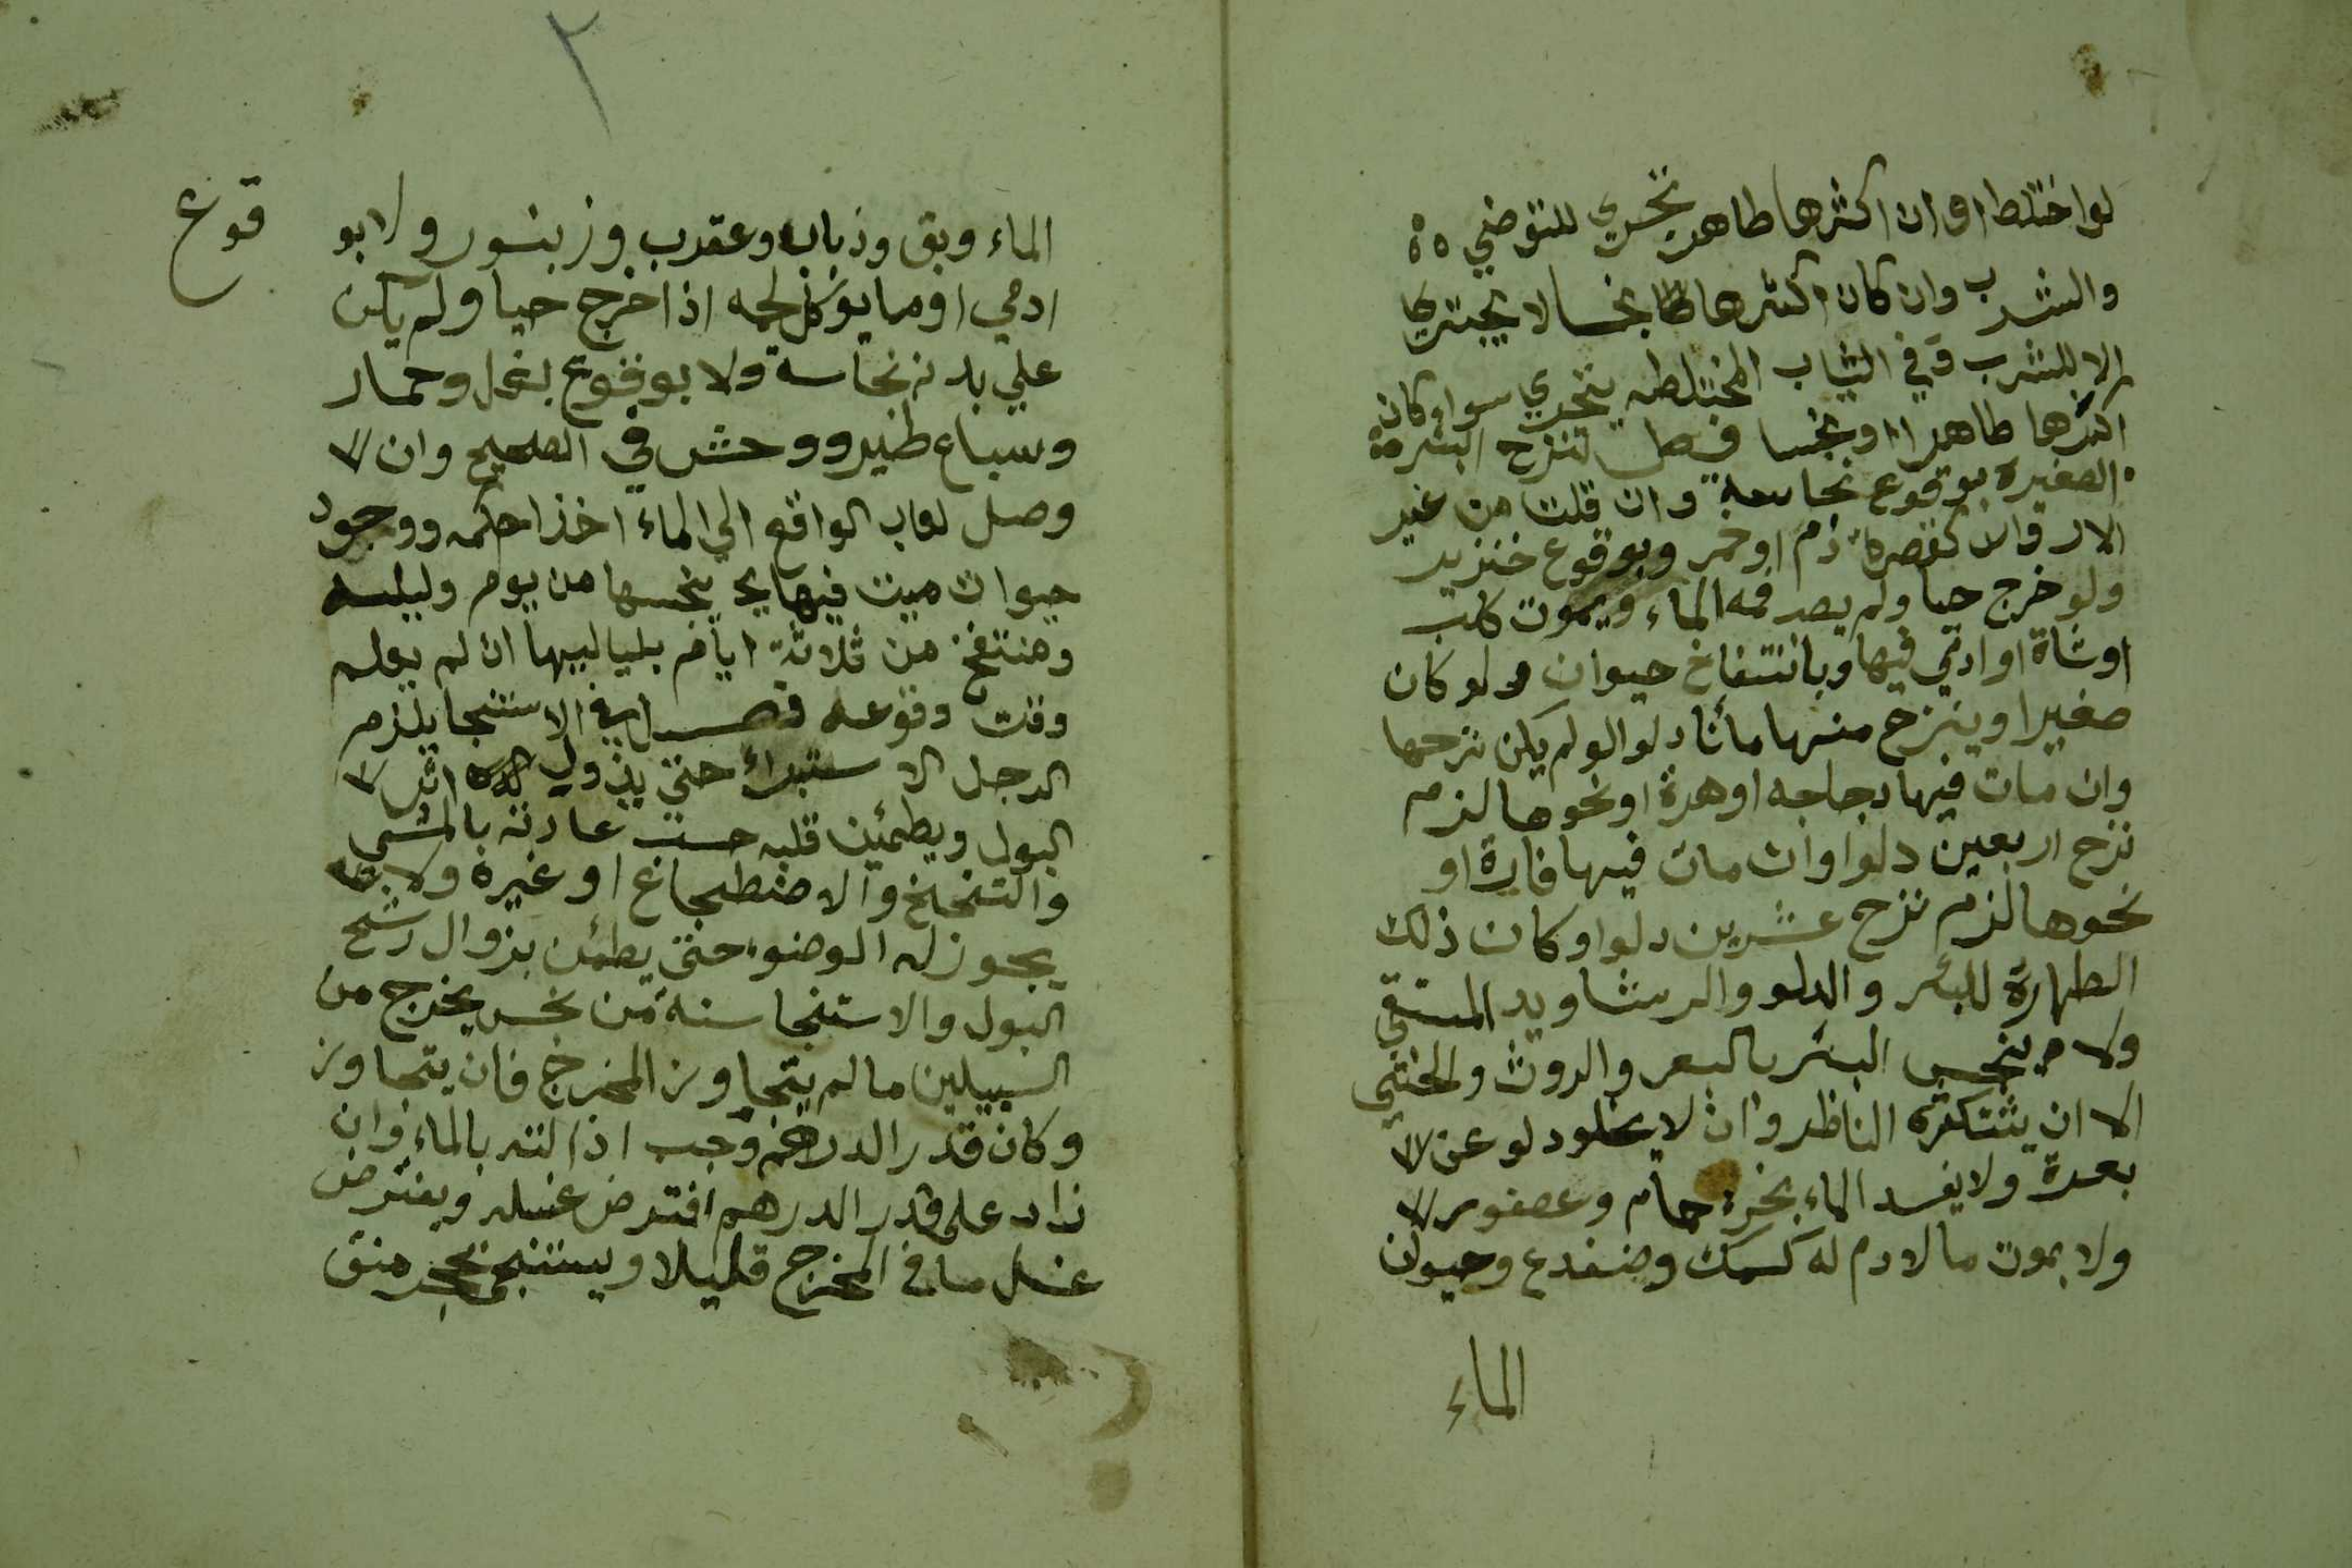 لو اختلط اوان اكثرها طاهر تحري للتوضي
والشرب وان كان اكثرها نجسا لا يتحري
الا للشرب وفي الثياب المختلطه يتحري سوا كان
اكثرها طاهرا او نجسا فصل تنزح البئر
الصغيرة بوقوع نجاسة وان قلت من غير
الارواث كقطرة دم او خمر وبوقوع خنزير
ولو خرج حيا ولم يصب فمه الماء وبموت كلب
او شاة او ادمي فيها وبانتفاخ حيوان ولو كان
صغيرا وينزح منها مأتا دلو لو لم يكن نزحها
وان مات فيها دجاجه او هرة او نحوها لزم
نزح اربعين دلوا وان مات فيها فارة او
نحوها لزم نزح عشرين دلوا وكان ذلك
الطهارة للبئر والدلو والرشا ويد المستقي
ولا ينجس البئر بالبعر والروث والخثي
الا ان يستكثره الناظر وان لا يخلو دلو عن
بعرة ولا يفسد الماء بخرء حمام وعصفور
ولا بموت ما لا دم له كسمك وضفدع وحيوان
الماء
٢
الماء وبق وذباب وعقرب وزنبور ولا بو
قوع
ادمي او ما يوكل لحمه اذا خرج حيا ولم يكن
علي بدنه نجاسة ولا بوقوع بغل وحمار
وسباع طير ووحش في الصحيح وان
وصل لعاب الواقع الي الماء اخذ احكمه ووجود
حيوان ميت فيها ينجسها من يوم وليله
ومنتفخ من ثلاثة ايام بلياليها ان لم يعلم
وقت وقوعه فصل في الاستنجا يلزم
الرجل الاستبراء حتي يزول اثر
البول ويطمئن قلبه حسب عادته بالمشي
والتنحنح والاضطجاع او غيره ولا
يجوز له الوضوء حتي يطمئن بزوال رشح
البول والاستنجا سنة من نجس يخرج من
السبيلين ما لم يتجاوز المخرج فان يتجاوز
وكان قدر الدرهم وجب ازالته بالماء وان
زاد علي قدر الدرهم افترض غسله ويفترض
غسل ما في المخرج قليلا ويستنجي بحجر منق